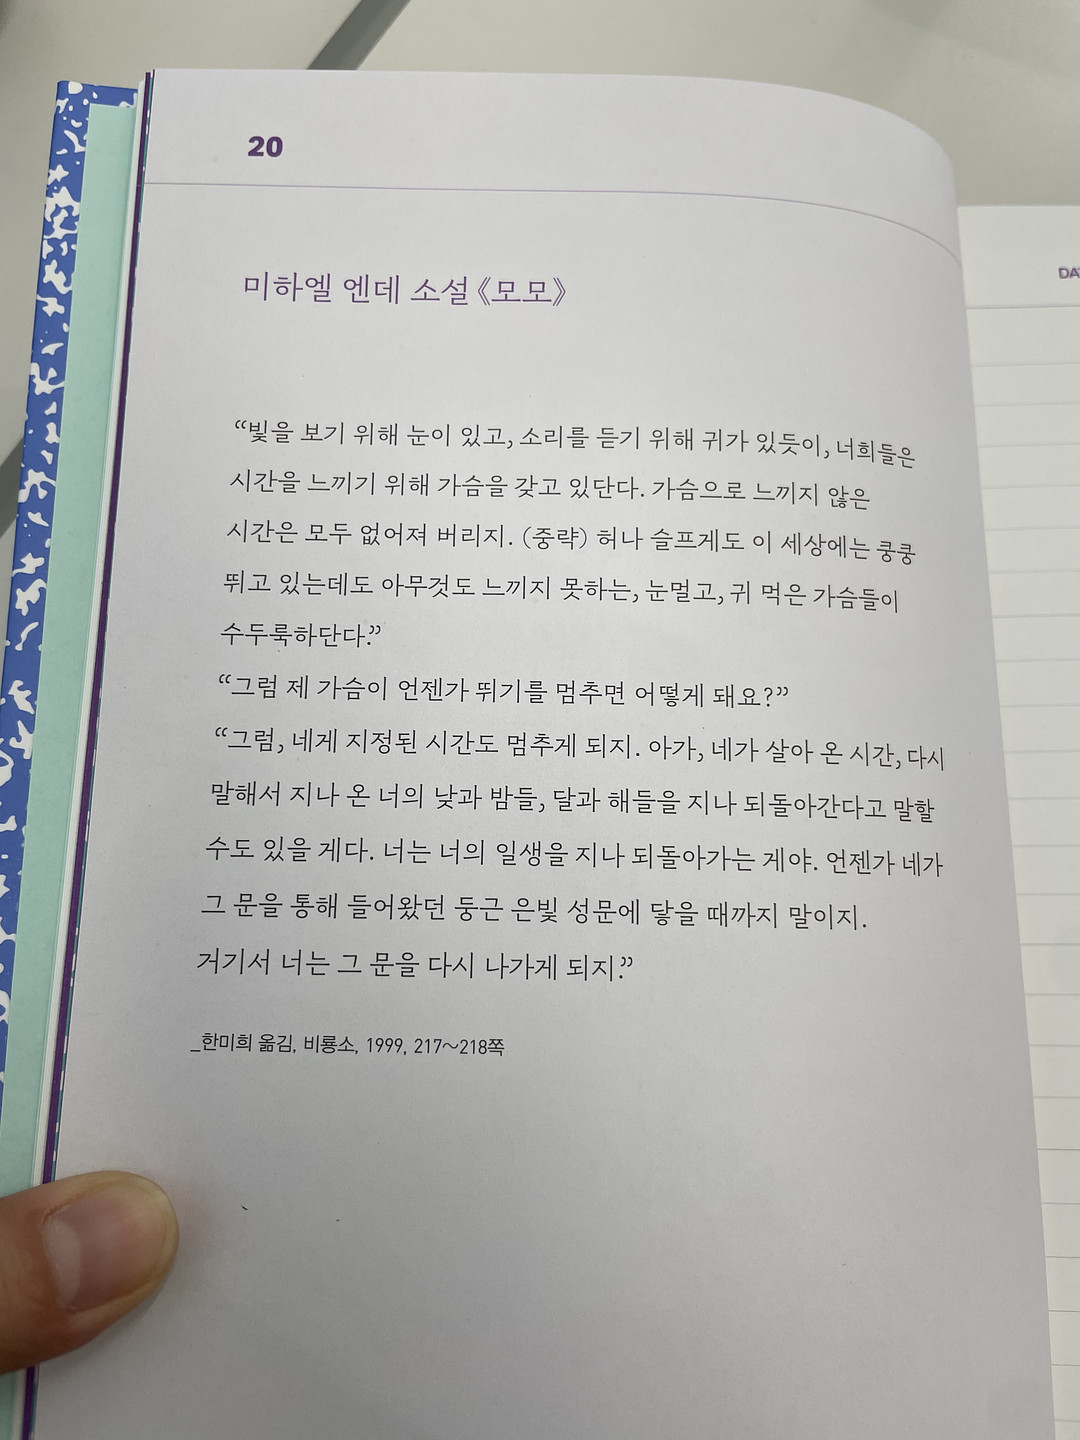 20
미하엘 엔데 소설 《모모》
“빛을 보기 위해 눈이 있고, 소리를 듣기 위해 귀가 있듯이, 너희들은
시간을 느끼기 위해 가슴을 갖고 있단다. 가슴으로 느끼지 않은
시간은 모두 없어져 버리지. (중략) 허나 슬프게도 이 세상에는 쿵쿵
뛰고 있는데도 아무것도 느끼지 못하는, 눈멀고, 귀 먹은 가슴들이
수두룩하단다.”
“그럼 제 가슴이 언젠가 뛰기를 멈추면 어떻게 돼요?”
“그럼, 네게 지정된 시간도 멈추게 되지. 아가, 네가 살아 온 시간, 다시
말해서 지나 온 너의 낮과 밤들, 달과 해들을 지나 되돌아간다고 말할
수도 있을 게다. 너는 너의 일생을 지나 되돌아가는 게야. 언젠가 네가
그 문을 통해 들어왔던 둥근 은빛 성문에 닿을 때까지 말이지.
거기서 너는 그 문을 다시 나가게 되지.”
_한미희 옮김, 비룡소, 1999, 217~218쪽